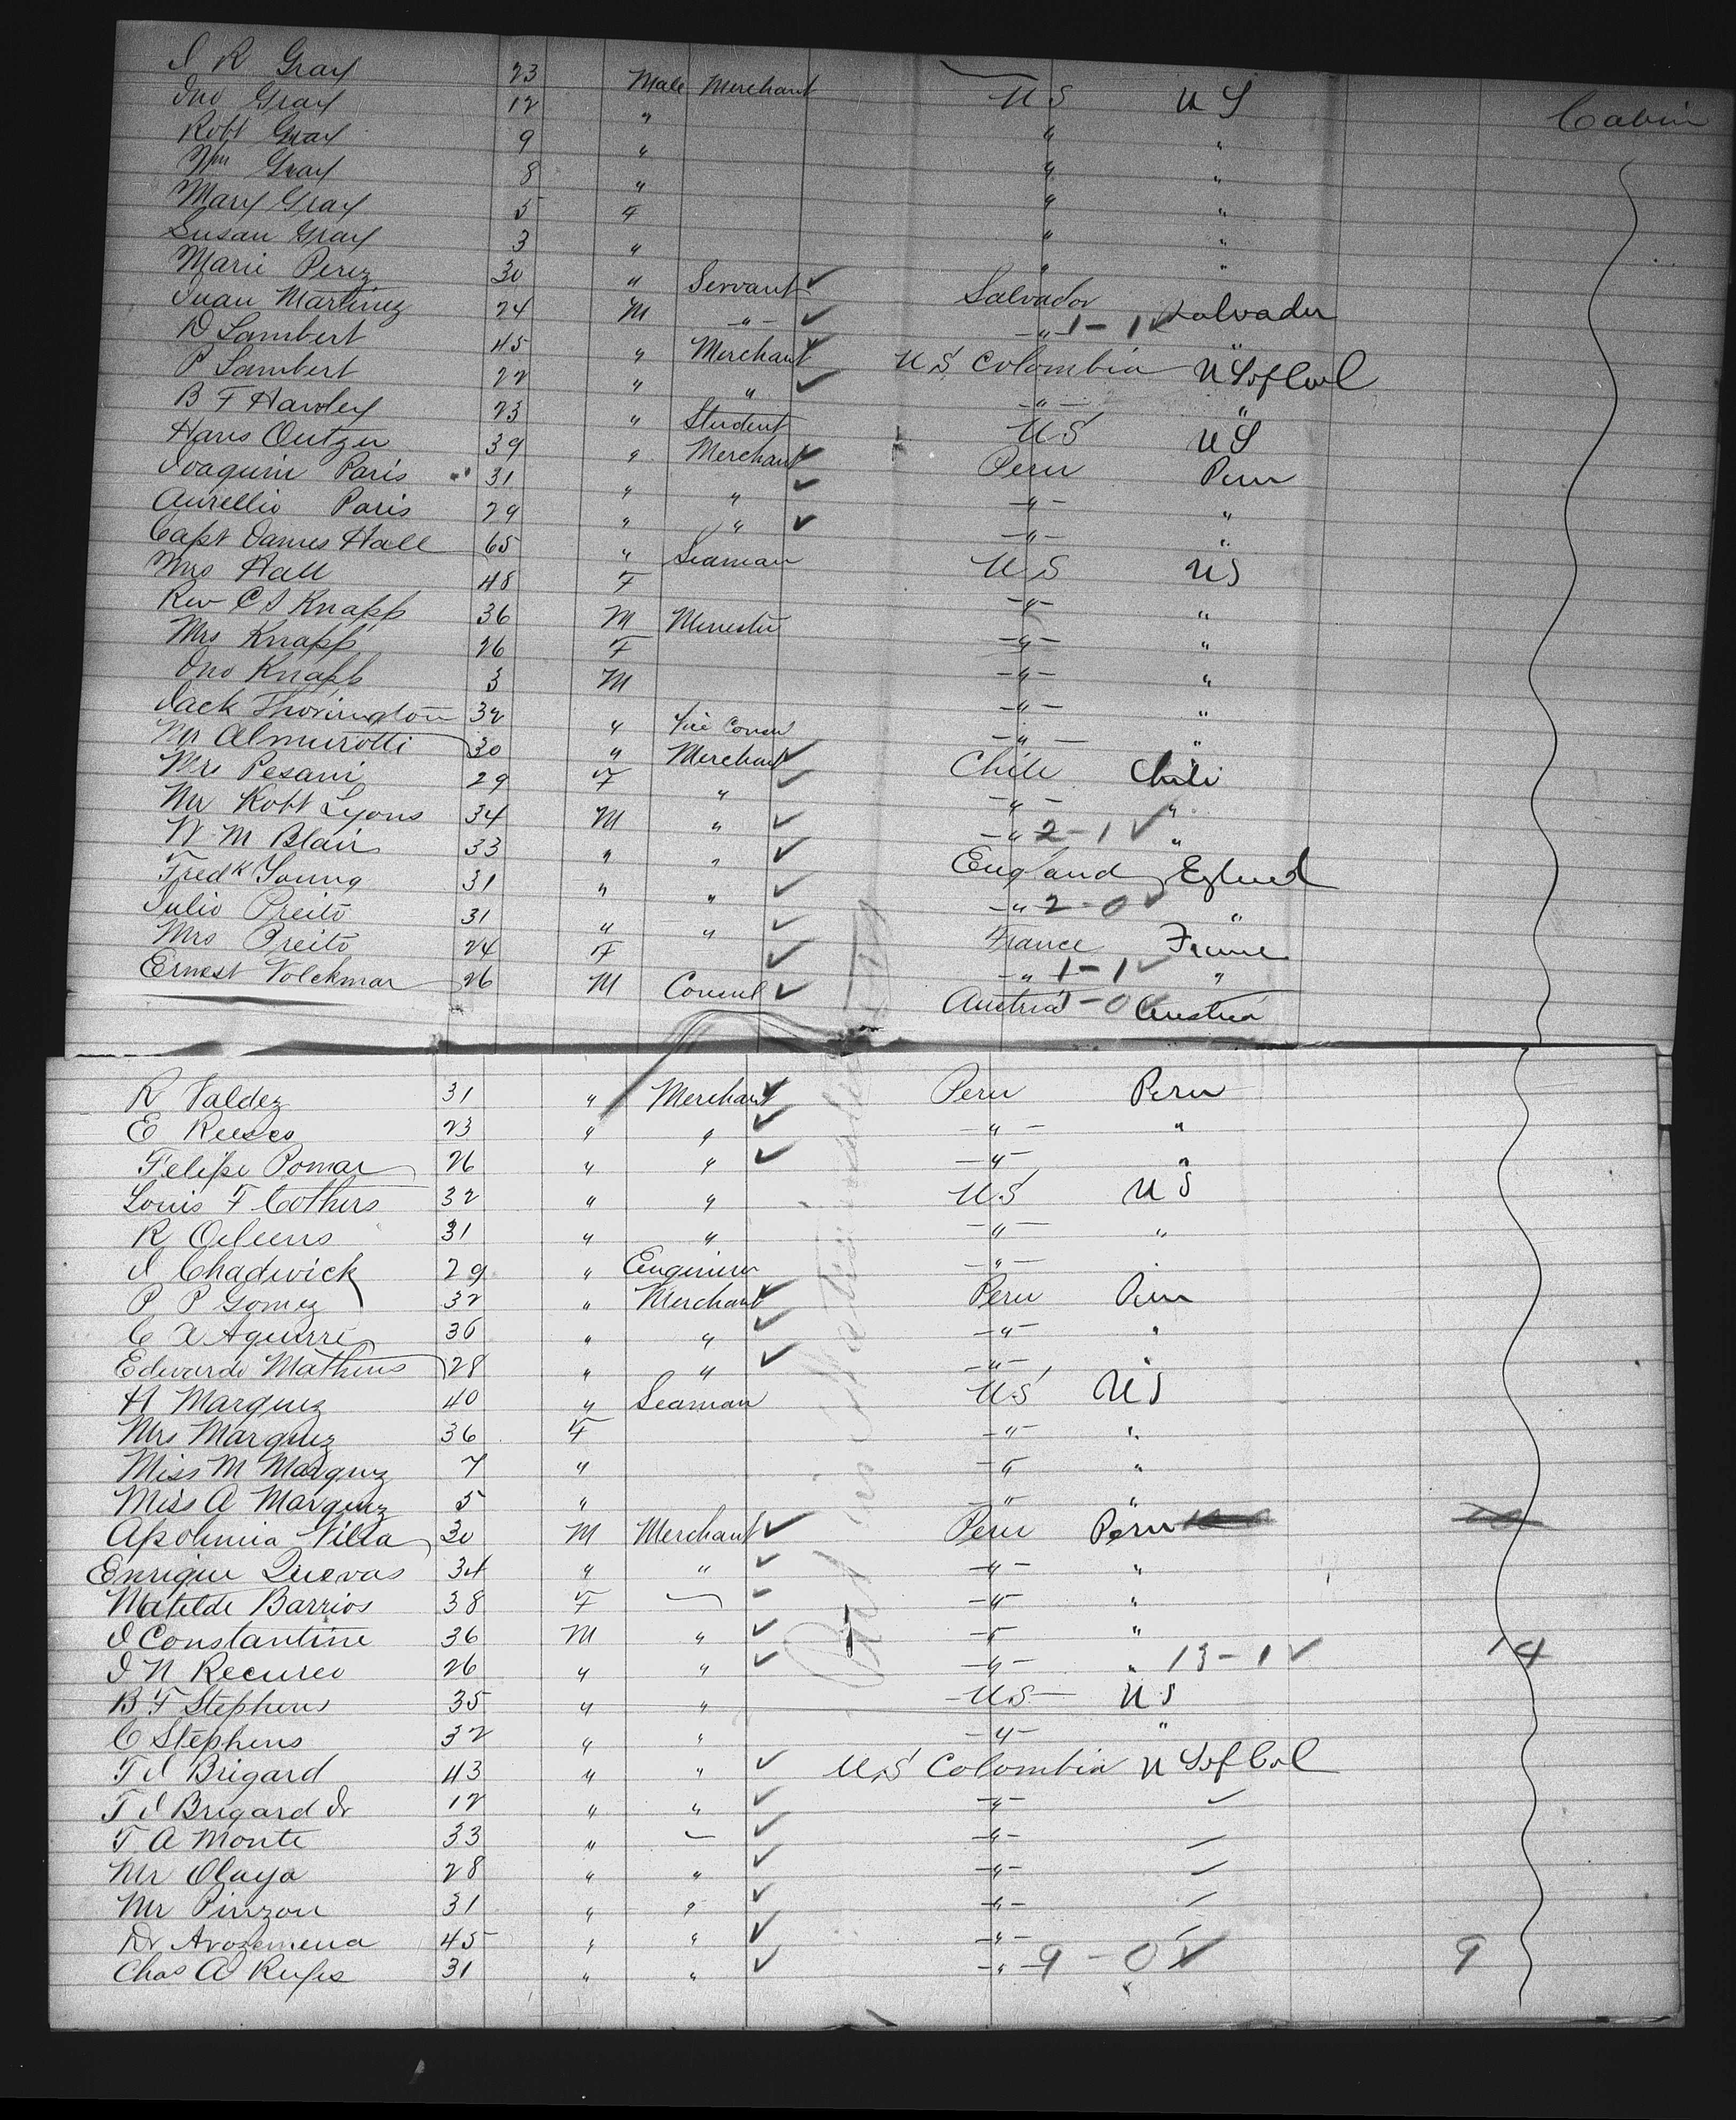 J R Gray 23 Male Merchant US US Cabin
Jno Gray 12 " " "
Robt Gray 9 " " "
Wm Gray 8 " " "
Mary Gray 5 F " "
Susan Gray 3 " " "
Marie Perez 30 " Servant ✓ Salvador Salvador
Juan Martinez 24 M -"- ✓ -"- 1-1 ✓ "
D Lambert 45 " Merchant ✓ US Colombia US of Col
P Lambert 22 " " ✓ -"- "
B F Hawley 23 " Student US US
Hans Oetzer 39 " Merchant ✓ Peru Peru
Joaquin Paris 31 " " ✓ -"- "
Aurellio Paris 29 " " ✓ -"- "
Capt James Hall 65 " Seaman US US
Mrs Hall 48 F -"- "
Rev C S Knapp 36 M Minister -"- "
Mrs Knapp 26 F -"- "
Jno Knapp 3 M -"- "
Jack Thorington 32 " Vice Consul -"- "
Mr Almurotti 30 " Merchant ✓ Chili Chili
Mrs Pesani 29 F " ✓ -"- "
Mr Robt Lyons 34 M " ✓ -"- 2-1 ✓ "
W M Blair 33 " " ✓ England England
Fredk Young 31 " " ✓ -"- 2-0 ✓ "
Julio Preito 31 " " ✓ France France
Mrs Preito 24 F ✓ -"- 1-1 ✓ "
Ernest Volckmar 26 M Consul ✓ Austria 1-0 ✓ Austria
R Valdez 31 " Merchant ✓ Peru Peru
E 23 " " ✓ -"- "
Felipe Pomar 26 " " ✓ -"- "
Louis F Cothers 32 " " US US
R 31 " " -"- "
J Chadwick 29 " Engineer -"- "
P P Gomez 32 " Merchant ✓ Peru Peru
C A Aguirre 36 " " ✓ -"- "
Edwardo Matheus 28 " " ✓ -"- "
H Marquez 40 " Seaman US US
Mrs Marquez 36 F -"- "
Miss M Marquez 7 " -"- "
Miss A Marquez 5 " -"- "
Apolinia Villa 30 M Merchant ✓ Peru Peru
Enrique Quevas 34 " " ✓ -"- "
Matilde Barrios 38 F ✓ -"- "
J Constantine 36 M " ✓ -"- "
J N Recureo 26 " " ✓ -"- " 13-1 ✓ 14
B F Stephens 35 " " US US
C Stephens 32 " " -"- "
T J Brigard 43 " " ✓ US Colombia US of Col
T J Brigard Jr 12 " " ✓ -"- ✓
T A Monte 33 " ✓ -"- ✓
Mr Olaya 28 " " ✓ -"- ✓
Mr Pinzon 31 " " ✓ -"- ✓
Dr Arozemena 45 " " ✓ -"- ✓
Chas A 31 " " ✓ -"- 9-0 ✓ 9